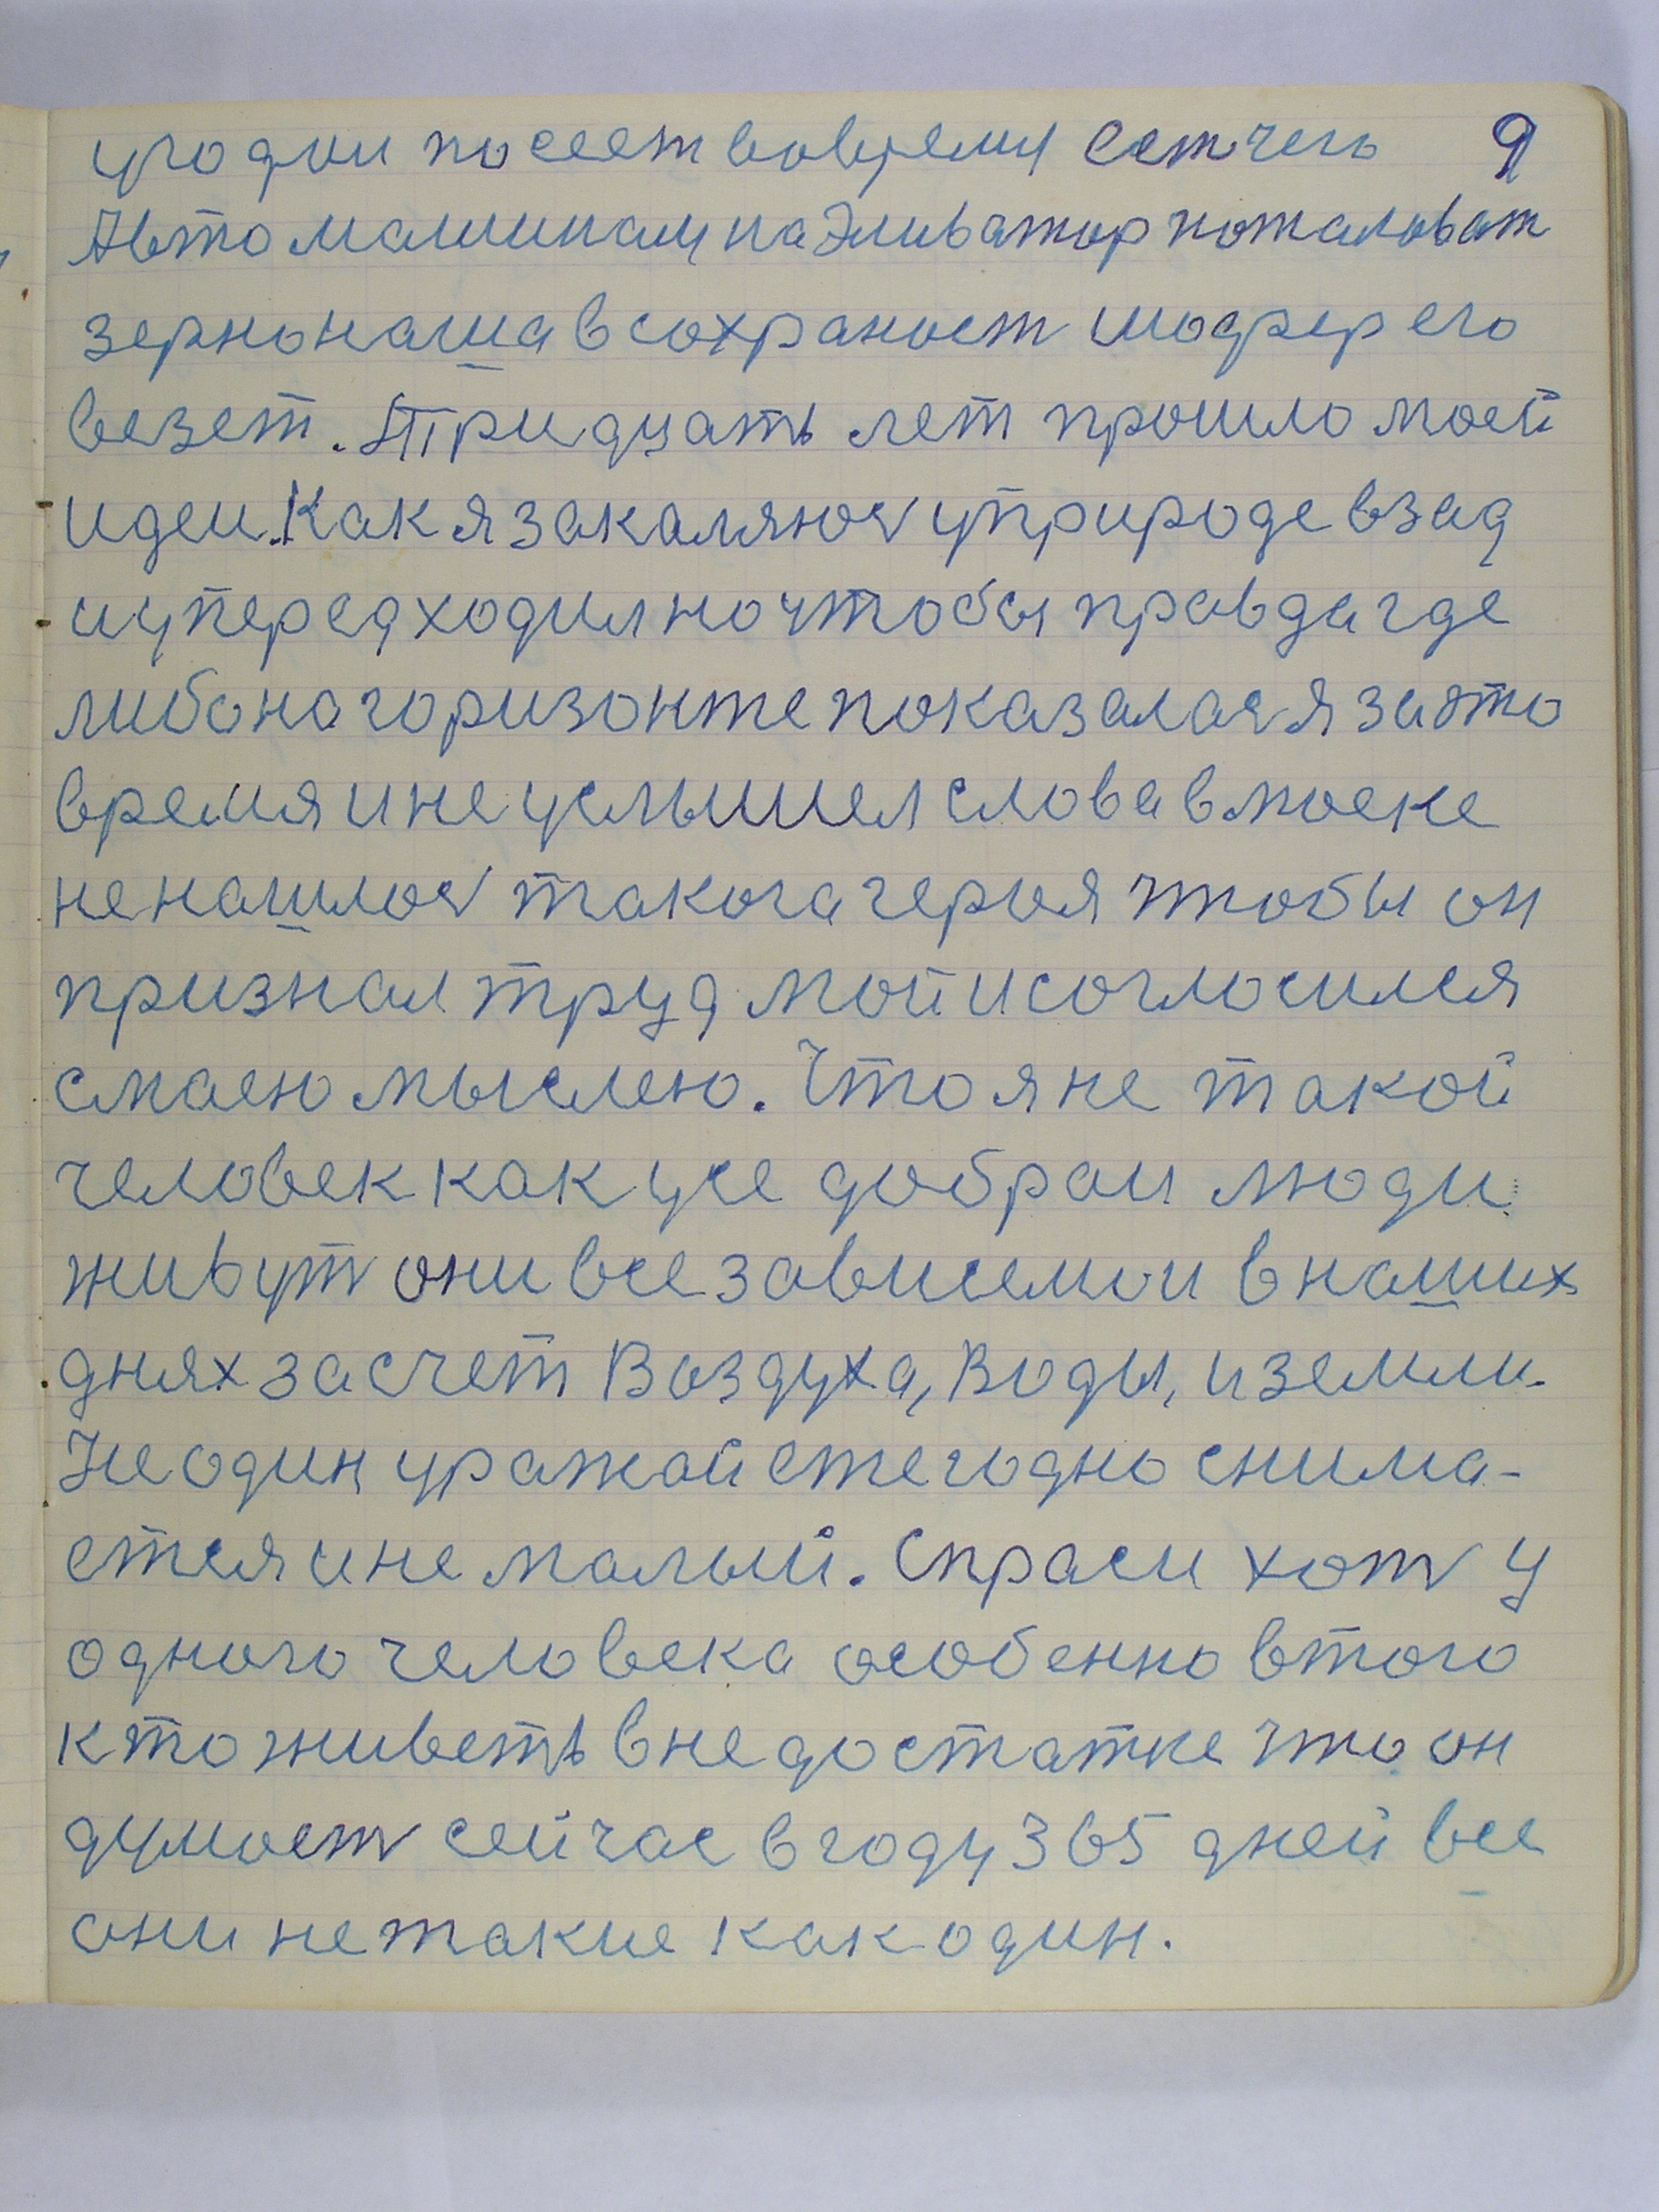 угодии посеет вовремя Ест чего 9
Автомашинаму на Эливатор пожаловат
зерно наша в сохраност шофер его
везет. Тридцать лет прошло моей
идеи. Как я закаляюсь у природе взад
и уперед ходил но чтобы правда где
либо на горизонте показалася я за это
время и не услышел слова в моске
не нашлось такога герия чтобы он
признал труд мой и согласился
смаею мыслею. Что я не такой
человек как усе добраи люди
живут они все зависемои в наших
днях за счет Воздуха, Воды, и земли.
Не один уражай ежегодно снима-
ется и не малый. Спраси хоть у
одного человека особенно в того
кто живеть в недостатке что он
думаеть сейчас в году 365 дней все
они не такие как один.